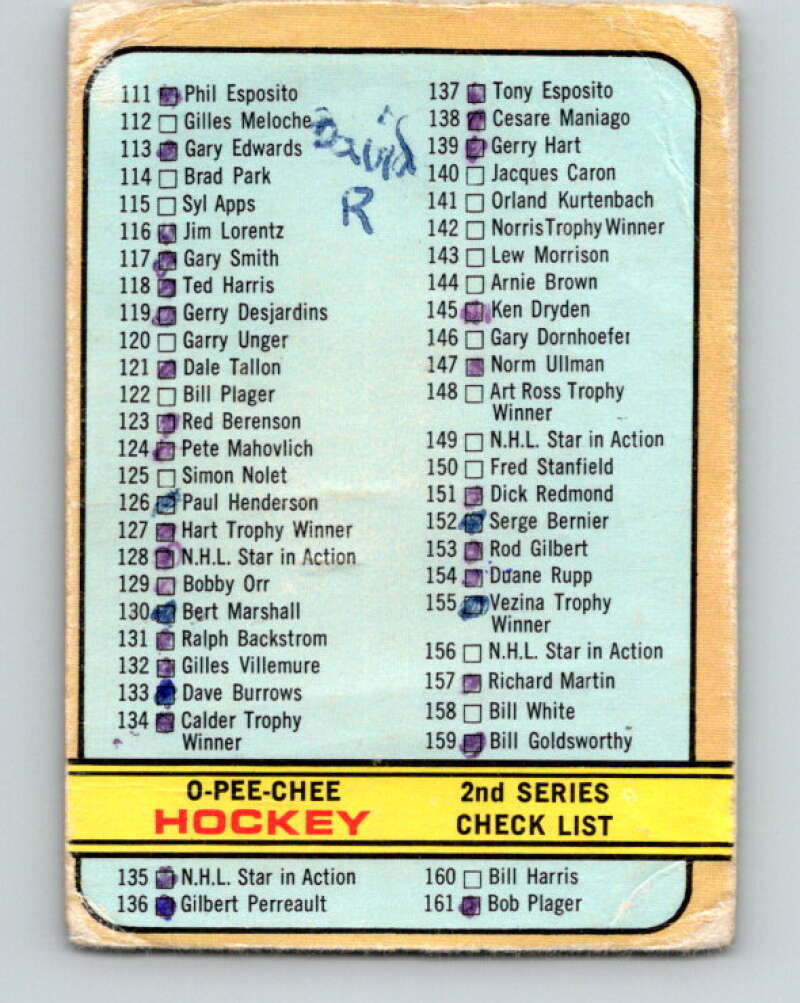 111 Phil Esposito
112 Gilles Meloche
113 Gary Edwards
114 Brad Park
115 Syl Apps
116 Jim Lorentz
117 Gary Smith
118 Ted Harris
119 Gerry Desjardins
120 Garry Unger
121 Dale Tallon
122 Bill Plager
123 Red Berenson
124 Pete Mahovlich
125 Simon Nolet
126 Paul Henderson
127 Hart Trophy Winner
128 N.H.L. Star in Action
129 Bobby Orr
130 Bert Marshall
131 Ralph Backstrom
132 Gilles Villemure
133 Dave Burrows
134 Calder Trophy
Winner
David
R
137 Tony Esposito
138 Cesare Maniago
139 Gerry Hart
140 Jacques Caron
141 Orland Kurtenbach
142 Norris Trophy Winner
143 Lew Morrison
144 Arnie Brown
145 Ken Dryden
146 Gary Dornhoefer
147 Norm Ullman
148 Art Ross Trophy
Winner
149 N.H.L. Star in Action
150 Fred Stanfield
151 Dick Redmond
152 Serge Bernier
153 Rod Gilbert
154 Duane Rupp
155 Vezina Trophy
Winner
156 N.H.L. Star in Action
157 Richard Martin
158 Bill White
159 Bill Goldsworthy
O-PEE-CHEE
HOCKEY
2nd SERIES
CHECK LIST
135 N.H.L. Star in Action
136 Gilbert Perreault
160 Bill Harris
161 Bob Plager